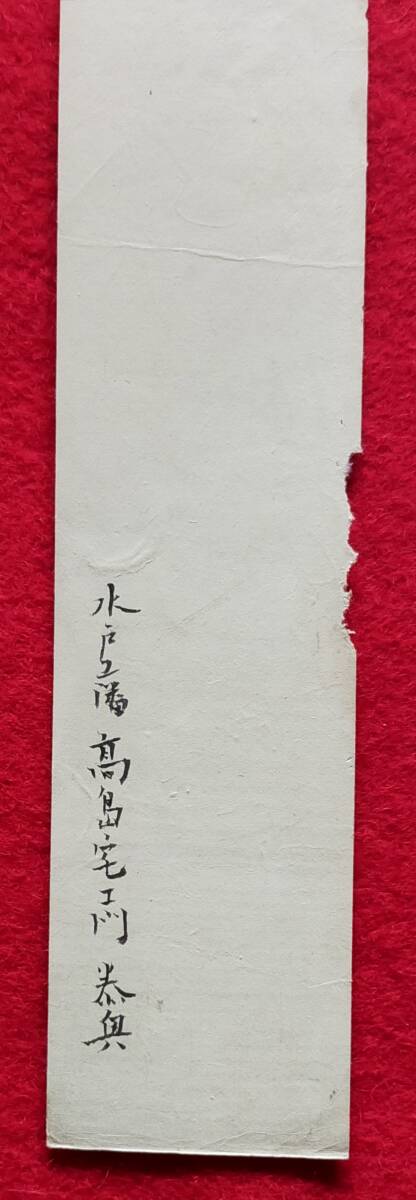 水戸藩 高島宅エ門 泰興